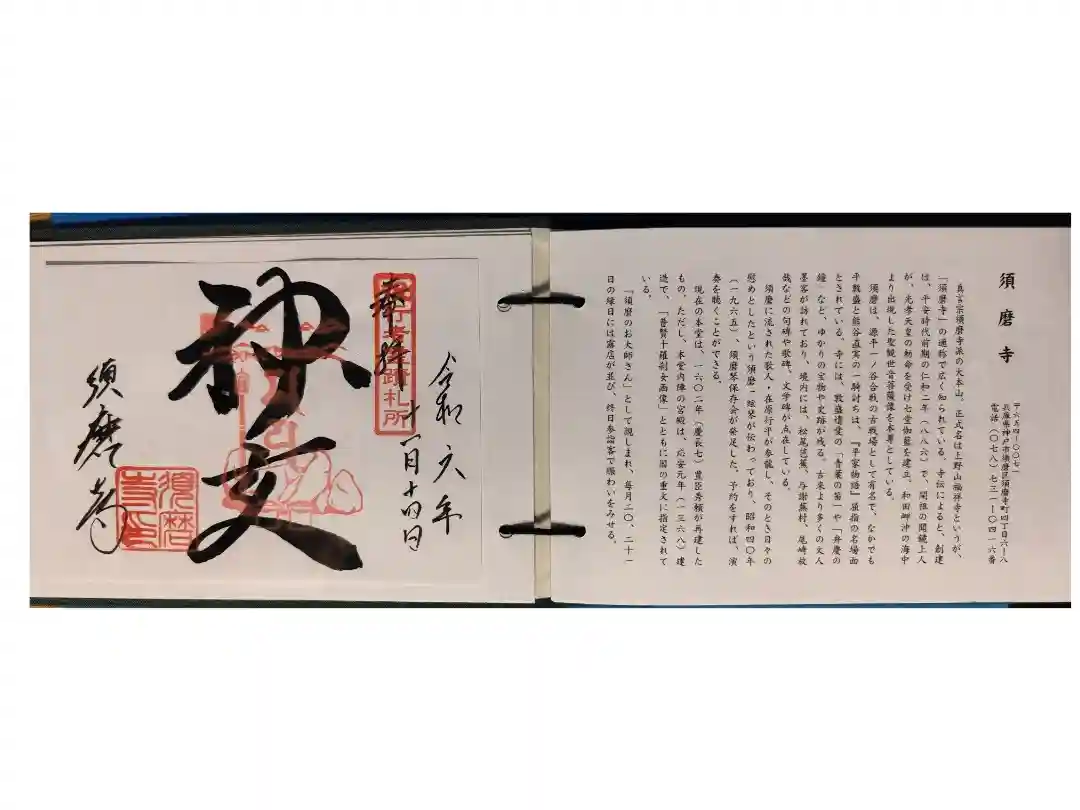 須磨寺
〒六五四ー〇〇七一
兵庫県神戸市須磨区須磨寺町四丁目六ー八
電話(〇七八)七三一ー〇四一六番
真言宗須磨寺派の大本山。正式名は上野山福祥寺というが、
「須磨寺」の通称で広く知られている。寺伝によると、創建
は、平安時代前期の仁和二年(八八六)で、開祖の聞鏡上人
が、光孝天皇の勅命を受け七堂伽藍を建立、和田岬沖の海中
より出現した聖観世音菩薩像を本尊としている。
須磨は、源平一ノ谷合戦の古戦場として有名で、なかでも
平敦盛と熊谷直実の一騎討ちは、『平家物語』屈指の名場面
とされている。寺には、敦盛遺愛の「青葉の笛」や「弁慶の
鐘」など、ゆかりの宝物や史跡が残る。古来より多くの文人
墨客が訪れており、境内には、松尾芭蕉、与謝蕪村、尾崎放
哉などの句碑や歌碑、文学碑が点在している。
須磨に流された歌人・在原行平が参籠し、そのとき日々の
慰めとしたという須磨一絃琴が伝わっており、昭和四〇年
(一九六五)、須磨琴保存会が発足した。予約をすれば、演
奏を聴くことができる。
現在の本堂は、一六〇二年(慶長七)豊臣秀頼が再建した
もの。ただし、本堂内陣の宮殿は、応安元年(一三六八)建
造で、「普賢十羅刹女画像」とともに国の重文に指定されて
いる。
「須磨のお大師さん」として親しまれ、毎月二〇、二十一
日の縁日には露店が並び、終日参詣客で賑わいをみせる。
令和六年
十一月十四日
奉拝
役行者霊蹟札所
神変
須磨寺
須磨寺印